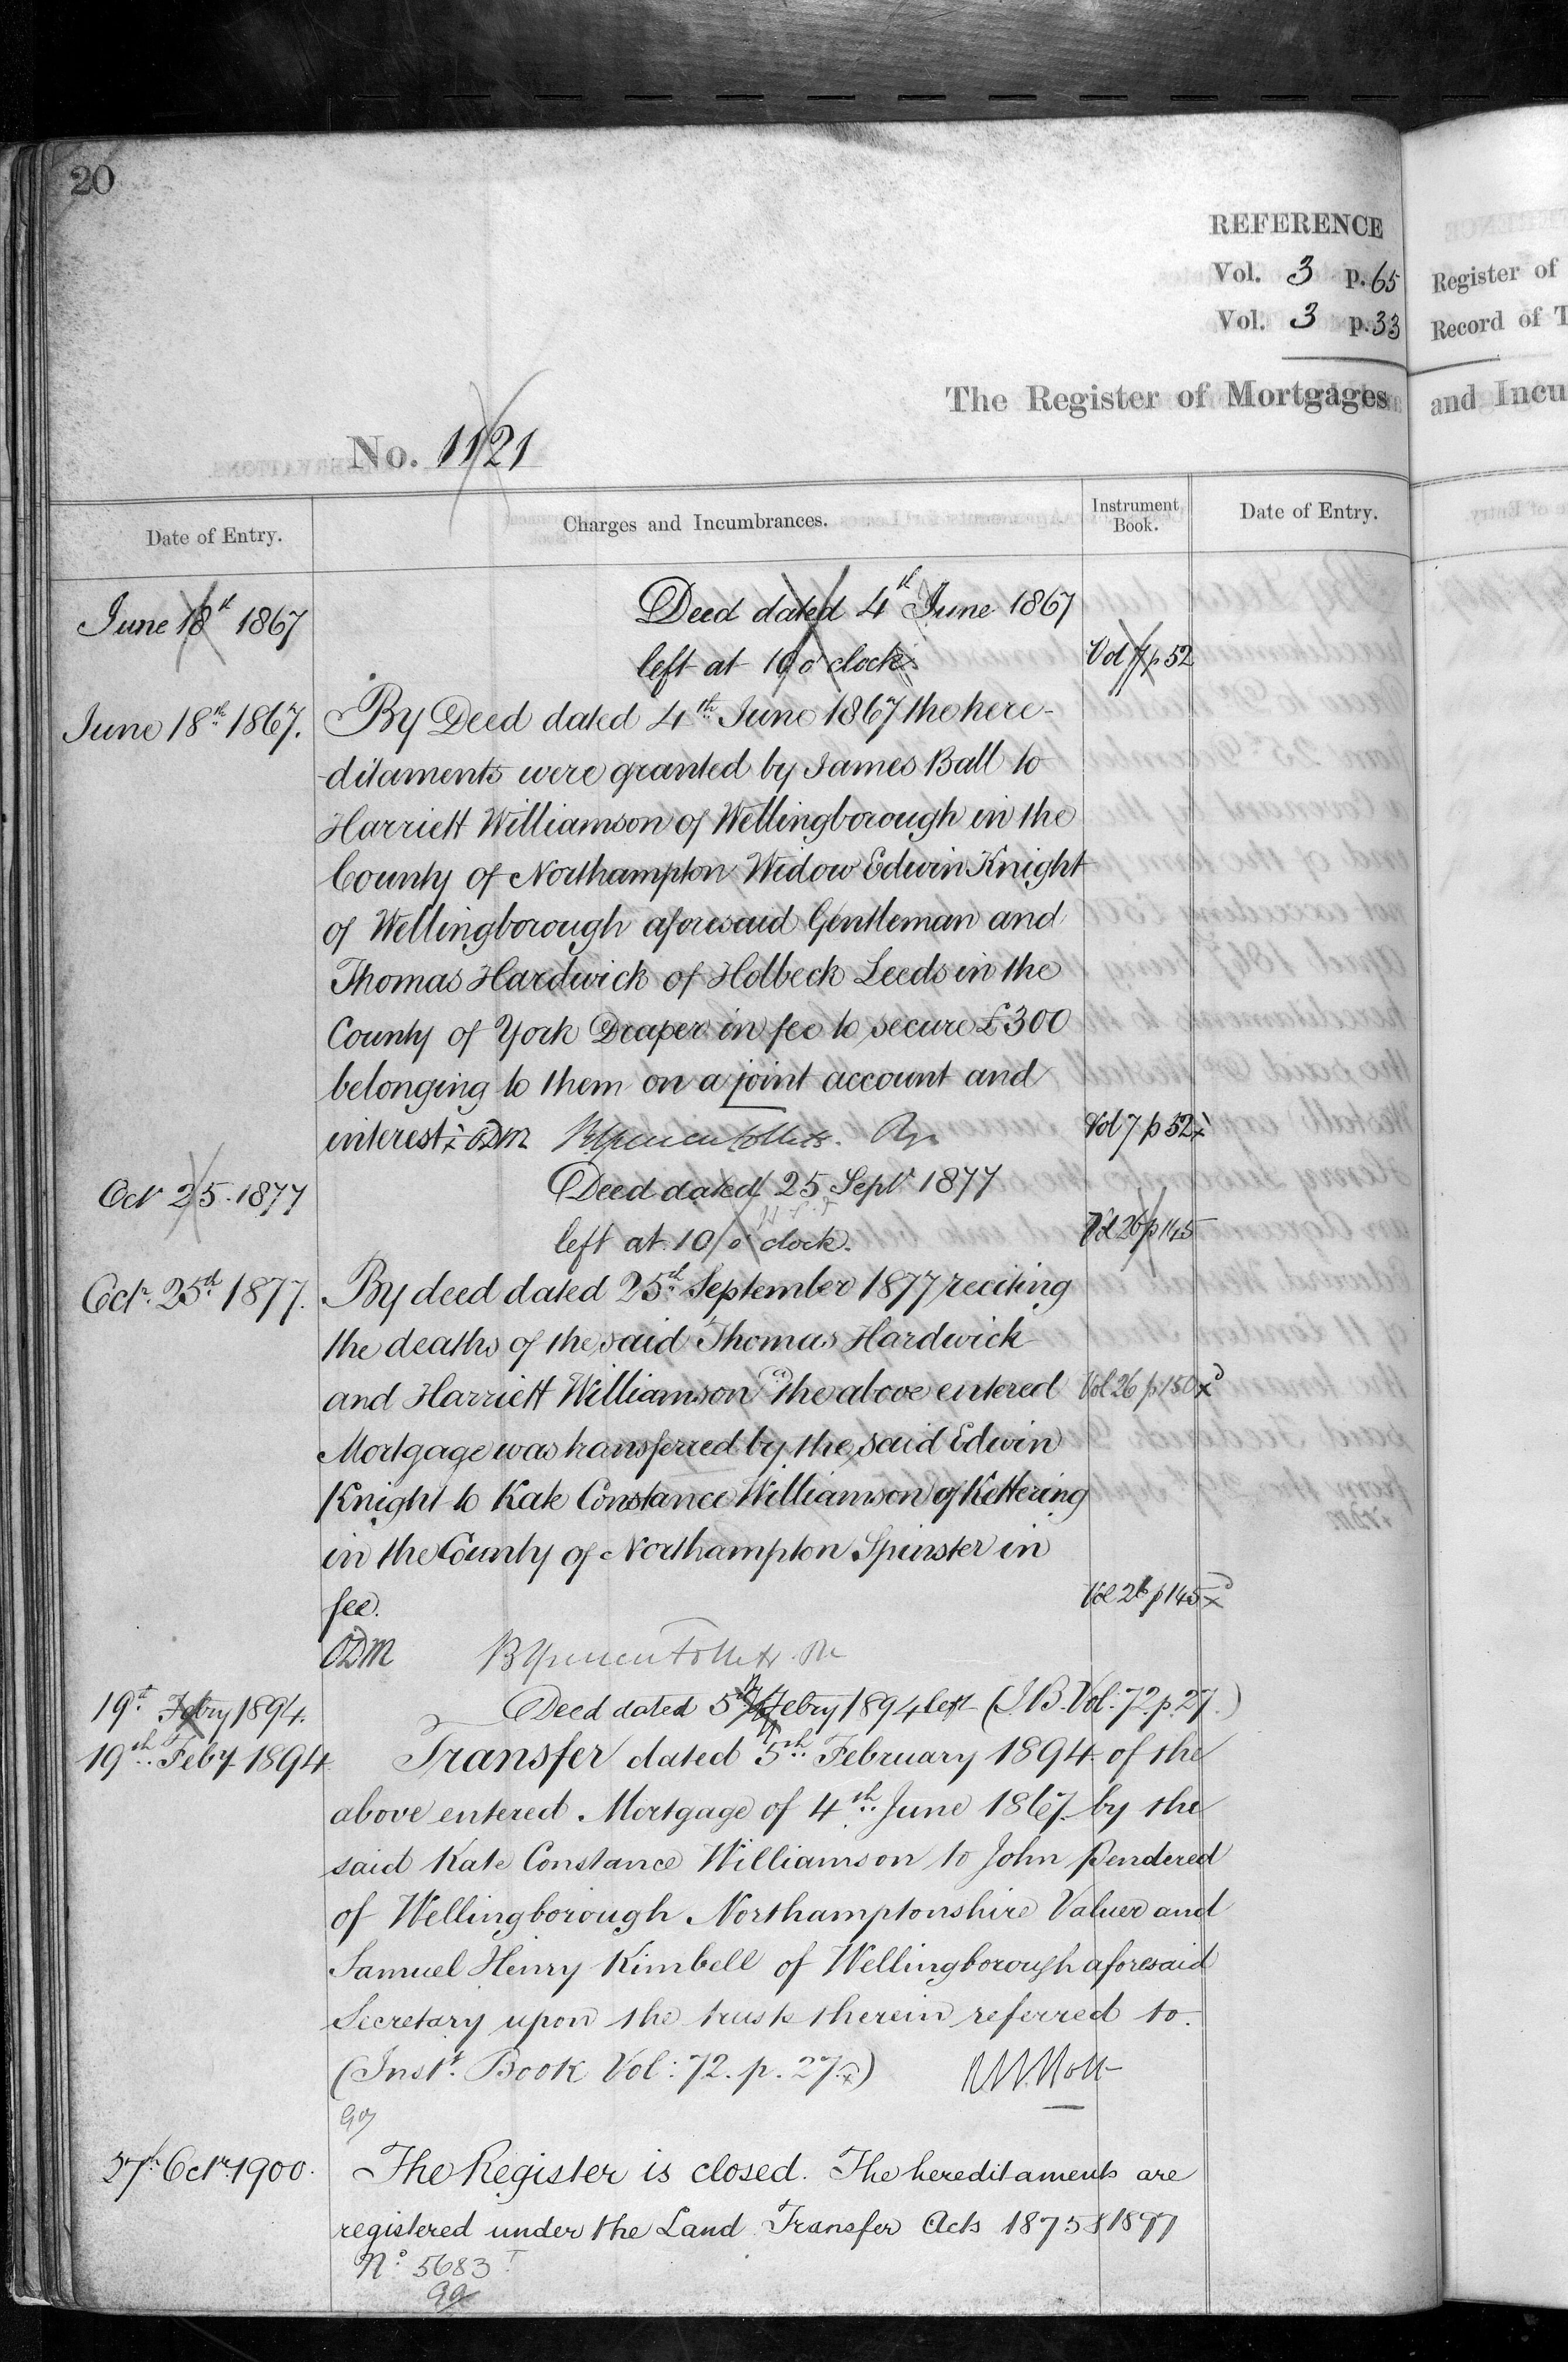 20
REFERENCE
Vol. 3 p. 65
Vol. 3 p. 33
Register of
Record of T
The Register of Mortgages
and Incu
No. 1121
Date of Entry.
Charges and Incumbrances.
Instrument Book.
Date of Entry.
June 18th 1867
Deed dated 4th June 1867
left at 10 o'clock.
Vol 7 p 52
June 18th 1867. By Deed dated 4th June 1867 the here-
ditaments were granted by James Ball to
Harriett Williamson of Wellingborough in the
County of Northampton Widow Edwin Knight
of Wellingborough aforesaid Gentleman and
Thomas Hardwick of Holbeck Leeds in the
County of York Draper in fee to secure £300
belonging to them on a joint account and
interest ODM
Vol 7 p 52
Octr 25. 1877
Deed dated 25 Septr 1877
left at 10 o'clock.
Vol 26 p 145
Octr. 25th 1877. By deed dated 25th September 1877 reciting
the deaths of the said Thomas Hardwick
and Harriett Williamson the above entered Vol 26 p 150
Mortgage was transferred by the said Edwin
Knight to Kate Constance Williamson of Kettering
in the County of Northampton Spinster in
fee.
Vol 26 p 145
ODM
19th Febry 1894. Deed dated 5th Febry 1894 left (I.B. Vol: 72. p. 27.)
19th Feby 1894 Transfer dated 5th February 1894 of the
above entered Mortgage of 4th June 1867 by the
said Kate Constance Williamson to John Pendered
of Wellingborough Northamptonshire Valuer and
Samuel Henry Kimbell of Wellingborough aforesaid
Secretary upon the trusts therein referred to.
(Inst. Book Vol: 72. p. 27.)
27th Octr. 1900. The Register is closed. The hereditaments are
registered under the Land Transfer Acts 1875 & 1897
No. 5683